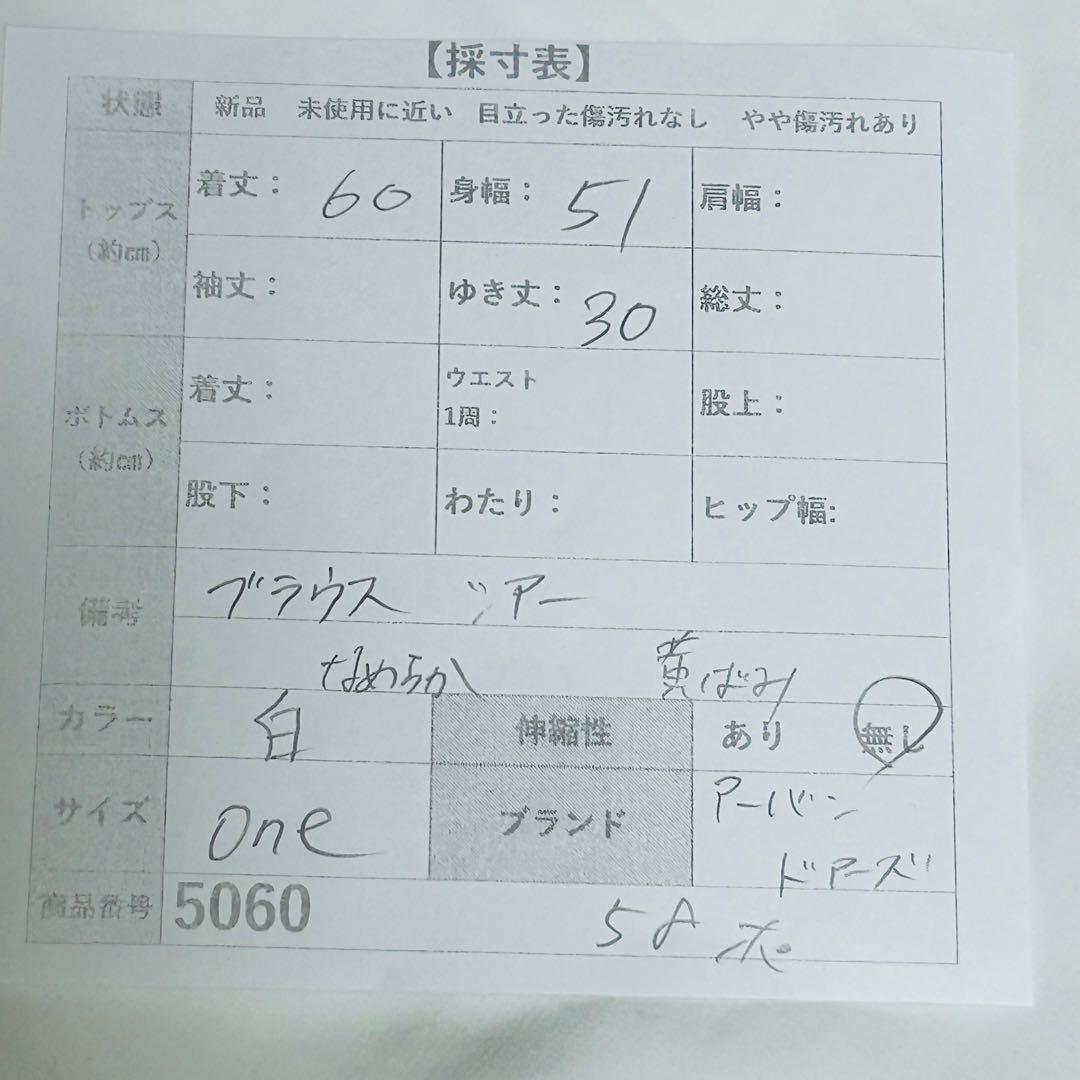 【採寸表】
状態 新品 未使用に近い 目立った傷汚れなし やや傷汚れあり
トップス (約cm) 着丈: 60 身幅: 51 肩幅:
袖丈: ゆき丈: 30 総丈:
ボトムス (約cm) 着丈: ウエスト 1周: 股上:
股下: わたり: ヒップ幅:
備考 ブラウス ツアー
なめらか 黄ばみ
カラー 白 伸縮性 あり 無し
サイズ one ブランド アーバン
ドアーズ
商品番号 5060 5